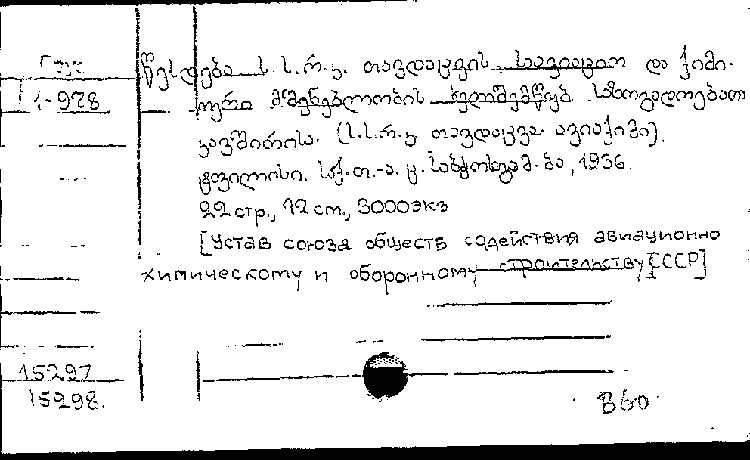 Груз
1-978
წესდება ს.ს.რ.კ. თავდაცვის, საავიაციო და ქიმი-
ური მშენებლობის ხელშემწყობ საზოგადოებათა
კავშირის. (ს.ს.რ.კ თავდაცვა-ავიაქიმი).
ტფილისი. საქ.თ.-ა. ც. საბჭოს გამ-ბა, 1936.
22 стр., 12 см., 3000 экз
[Устав союза обществ содействия авиационно
химическому и оборонному строительству СССР]
15297
15298.
В60